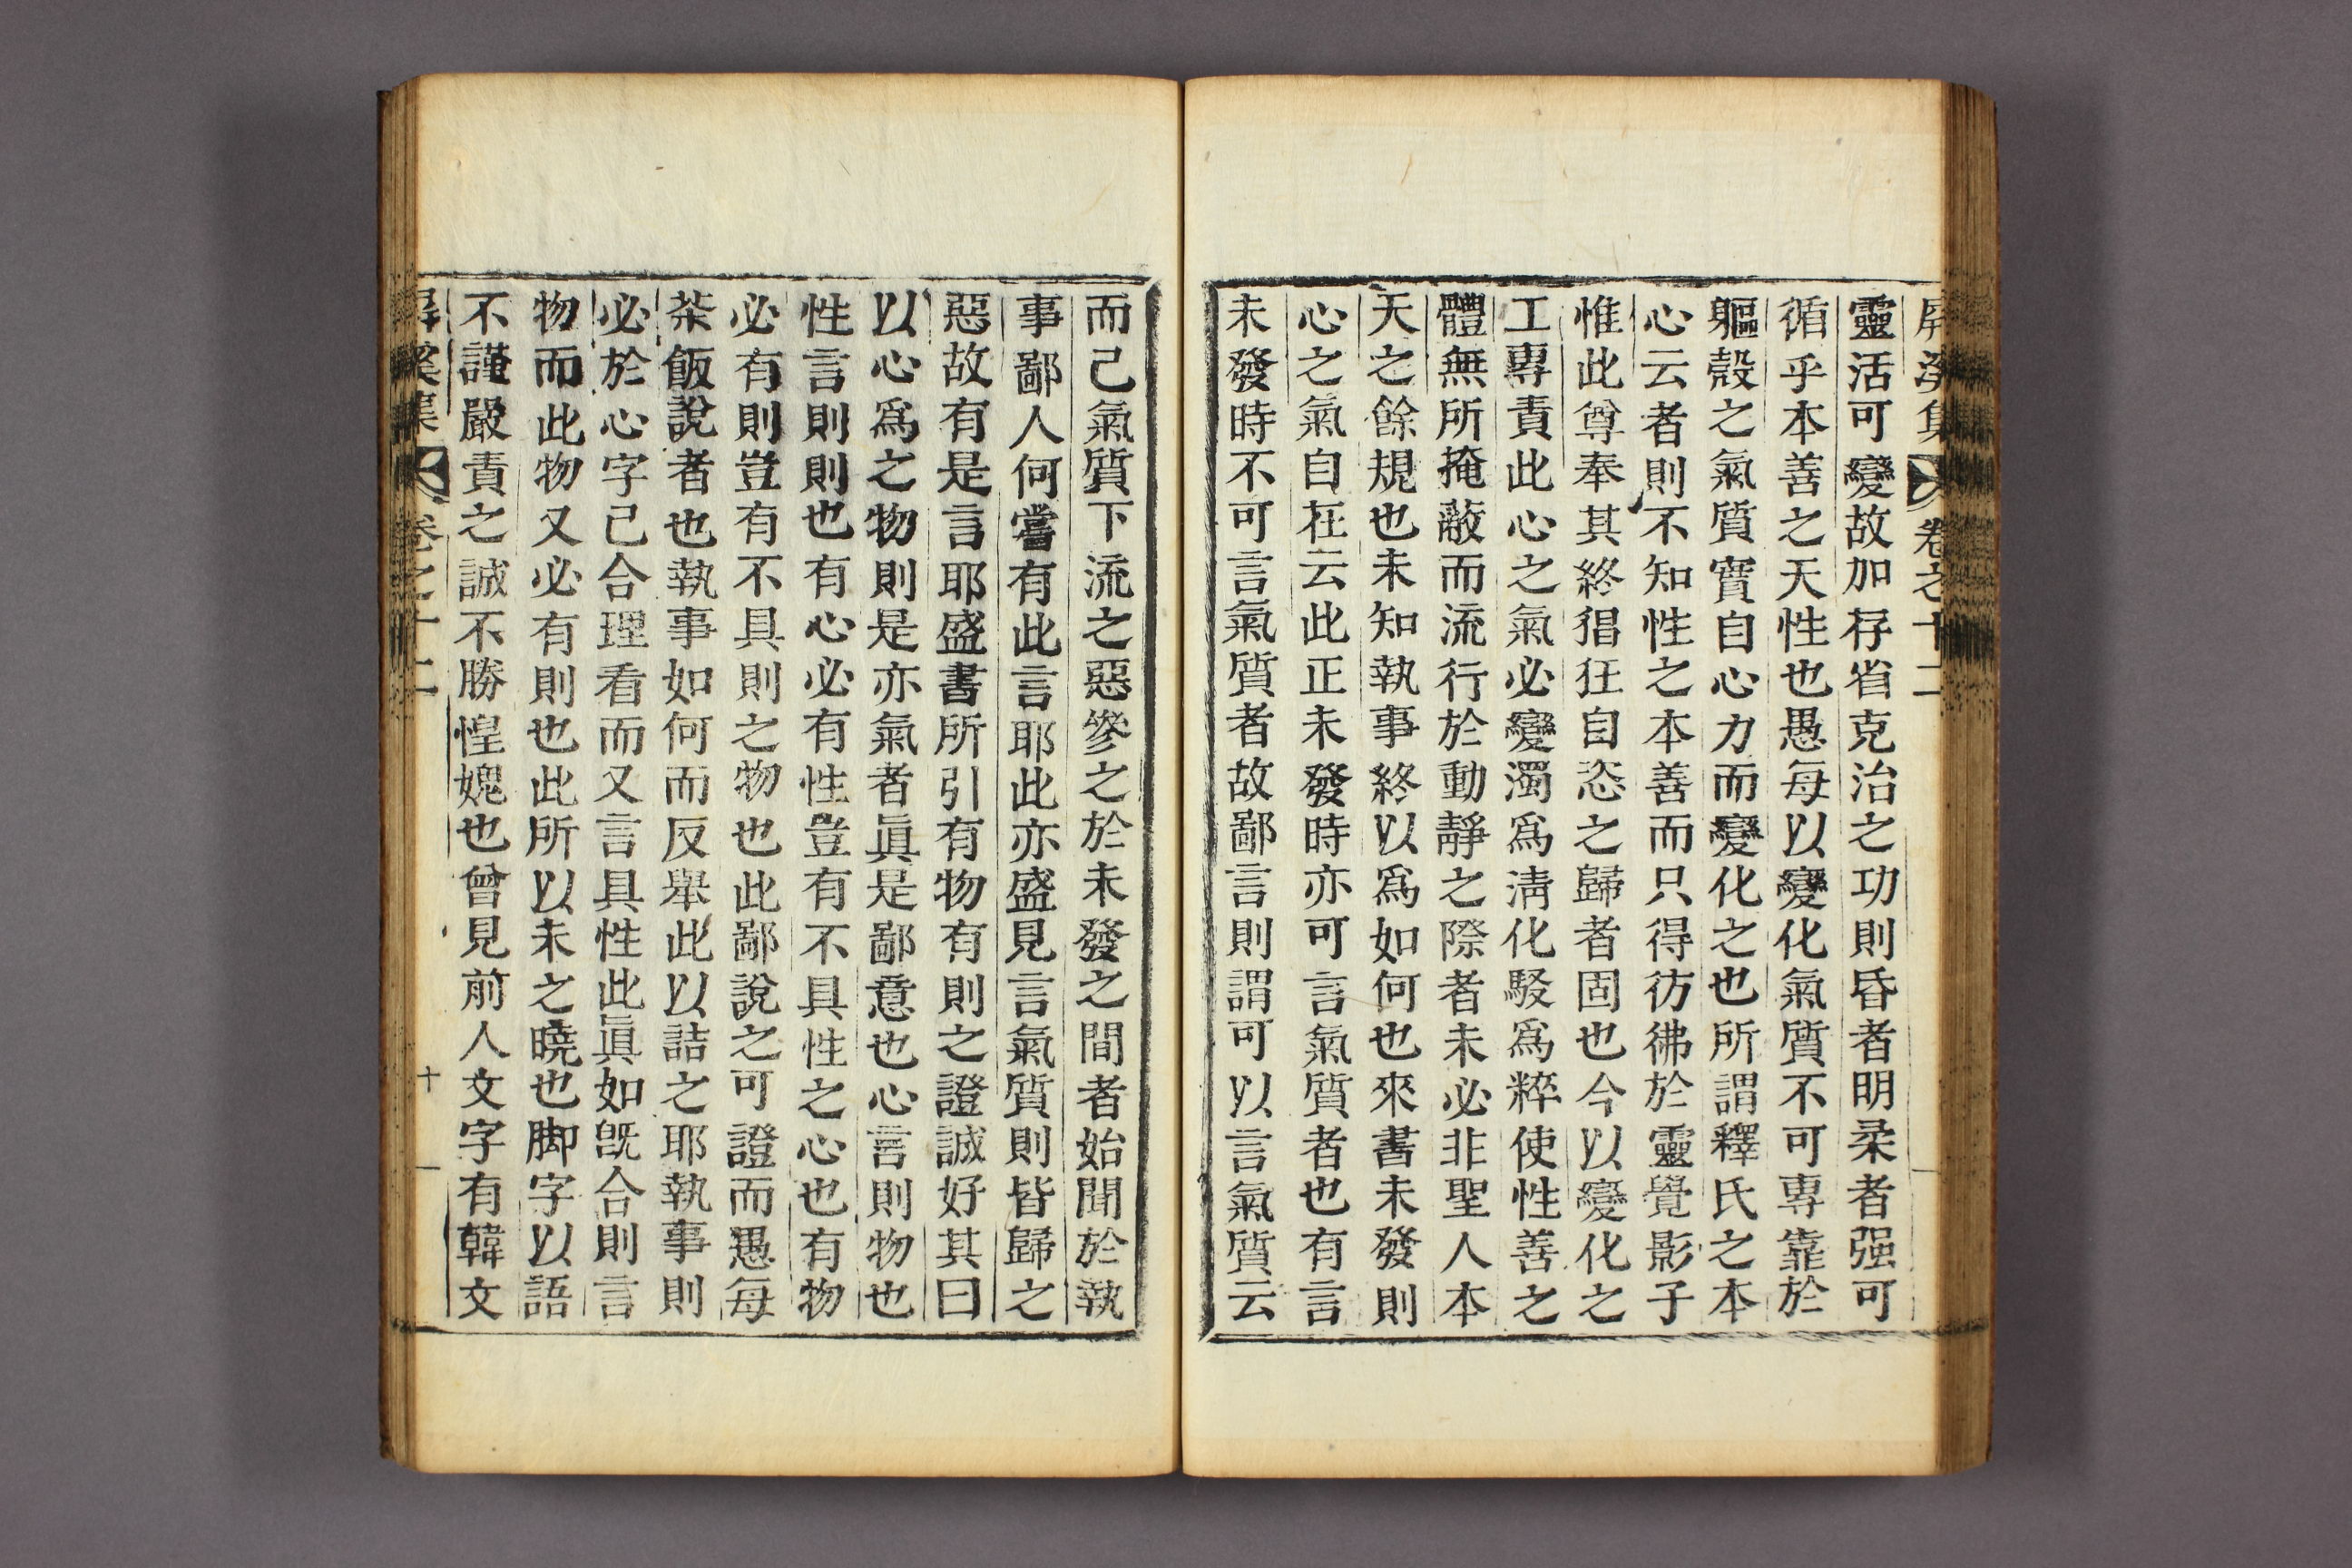 屛溪集
卷之十二
靈活可變故加存省克治之功則昏者明柔者强可
循乎本善之天性也愚每以變化氣質不可專靠於
軀殼之氣質實自心力而變化之也所謂釋氏之本
心云者則不知性之本善而只得彷彿於靈覺影子
惟此尊奉其終猖狂自恣之歸者固也今以變化之
工專責此心之氣必變濁爲淸化駁爲粹使性善之
體無所掩蔽而流行於動靜之際者未必非聖人本
天之餘規也未知執事終以爲如何也來書未發則
心之氣自在云此正未發時亦可言氣質者也有言
未發時不可言氣質者故鄙言則謂可以言氣質云
而己氣質下流之惡參之於未發之間者始聞於執
事鄙人何嘗有此言耶此亦盛見言氣質則皆歸之
惡故有是言耶盛書所引有物有則之證誠好其曰
以心爲之物則是亦氣者眞是鄙意也心言則物也
性言則則也有心必有性豈有不具性之心也有物
必有則豈有不具則之物也此鄙說之可證而愚每
茶飯說者也執事如何而反舉此以詰之耶執事則
必於心字己合理看而又言具性此眞如旣合則言
物而此物又必有則也此所以未之曉也脚字以語
不謹嚴責之誠不勝惶媿也曾見前人文字有韓文
屛溪集
卷之十二
十一